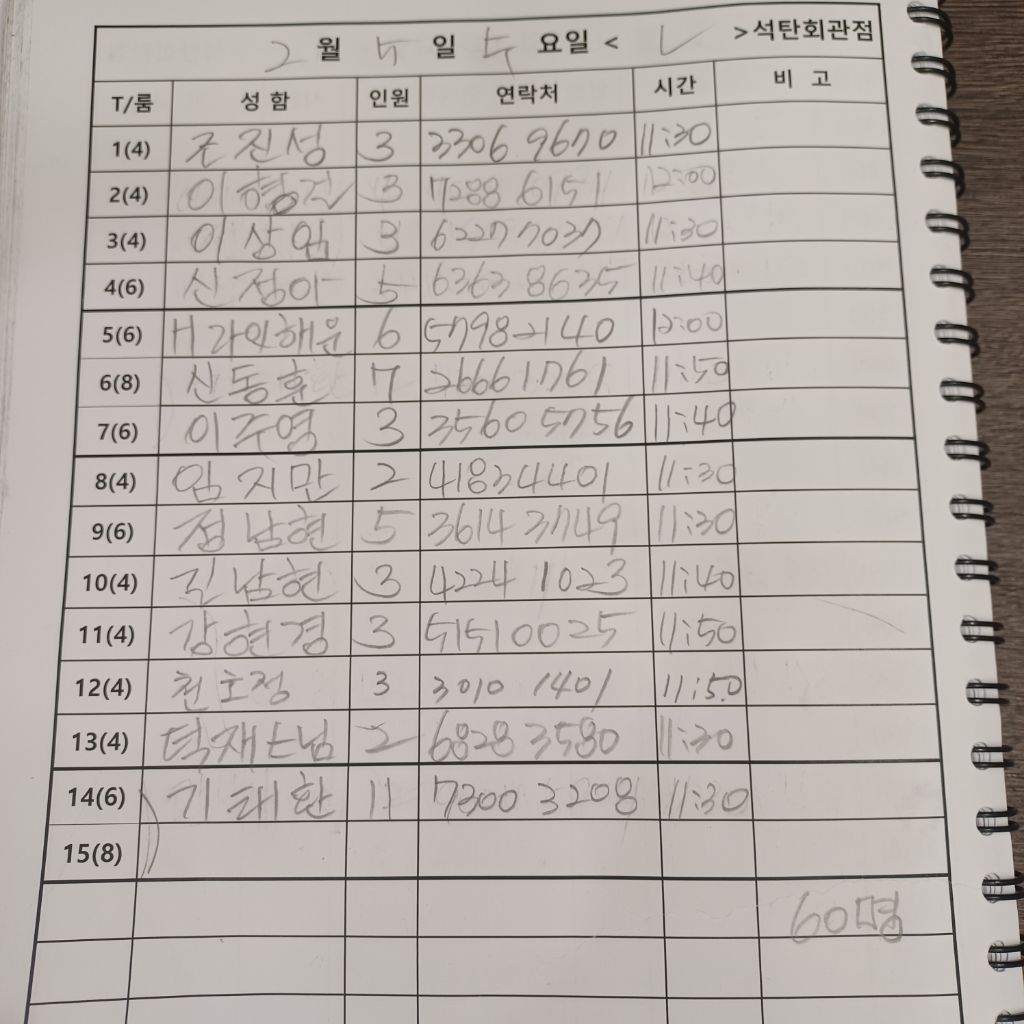 2 월 5 일 수 요일 < L > 석탄회관점
T/룸 성 함 인원 연락처 시간 비 고
1(4) 조진성 3 3306 9670 11:30
2(4) 이형진 3 7288 6151 12:00
3(4) 이상엄 3 6227 7037 11:30
4(6) 신정아 5 6363 8635 11:40
5(6) H라인해운 6 5798 2140 12:00
6(8) 신동훈 7 2666 1761 11:50
7(6) 이주영 3 3560 5756 11:40
8(4) 임지만 2 4183 4401 11:30
9(6) 정남현 5 3614 3749 11:30
10(4) 길남현 3 4224 1023 11:40
11(4) 강현경 3 5151 0025 11:50
12(4) 천호정 3 3010 1401 11:50
13(4) 2 6828 3580 11:30
14(6) 기태환 11 7300 3208 11:30
15(8)
60명